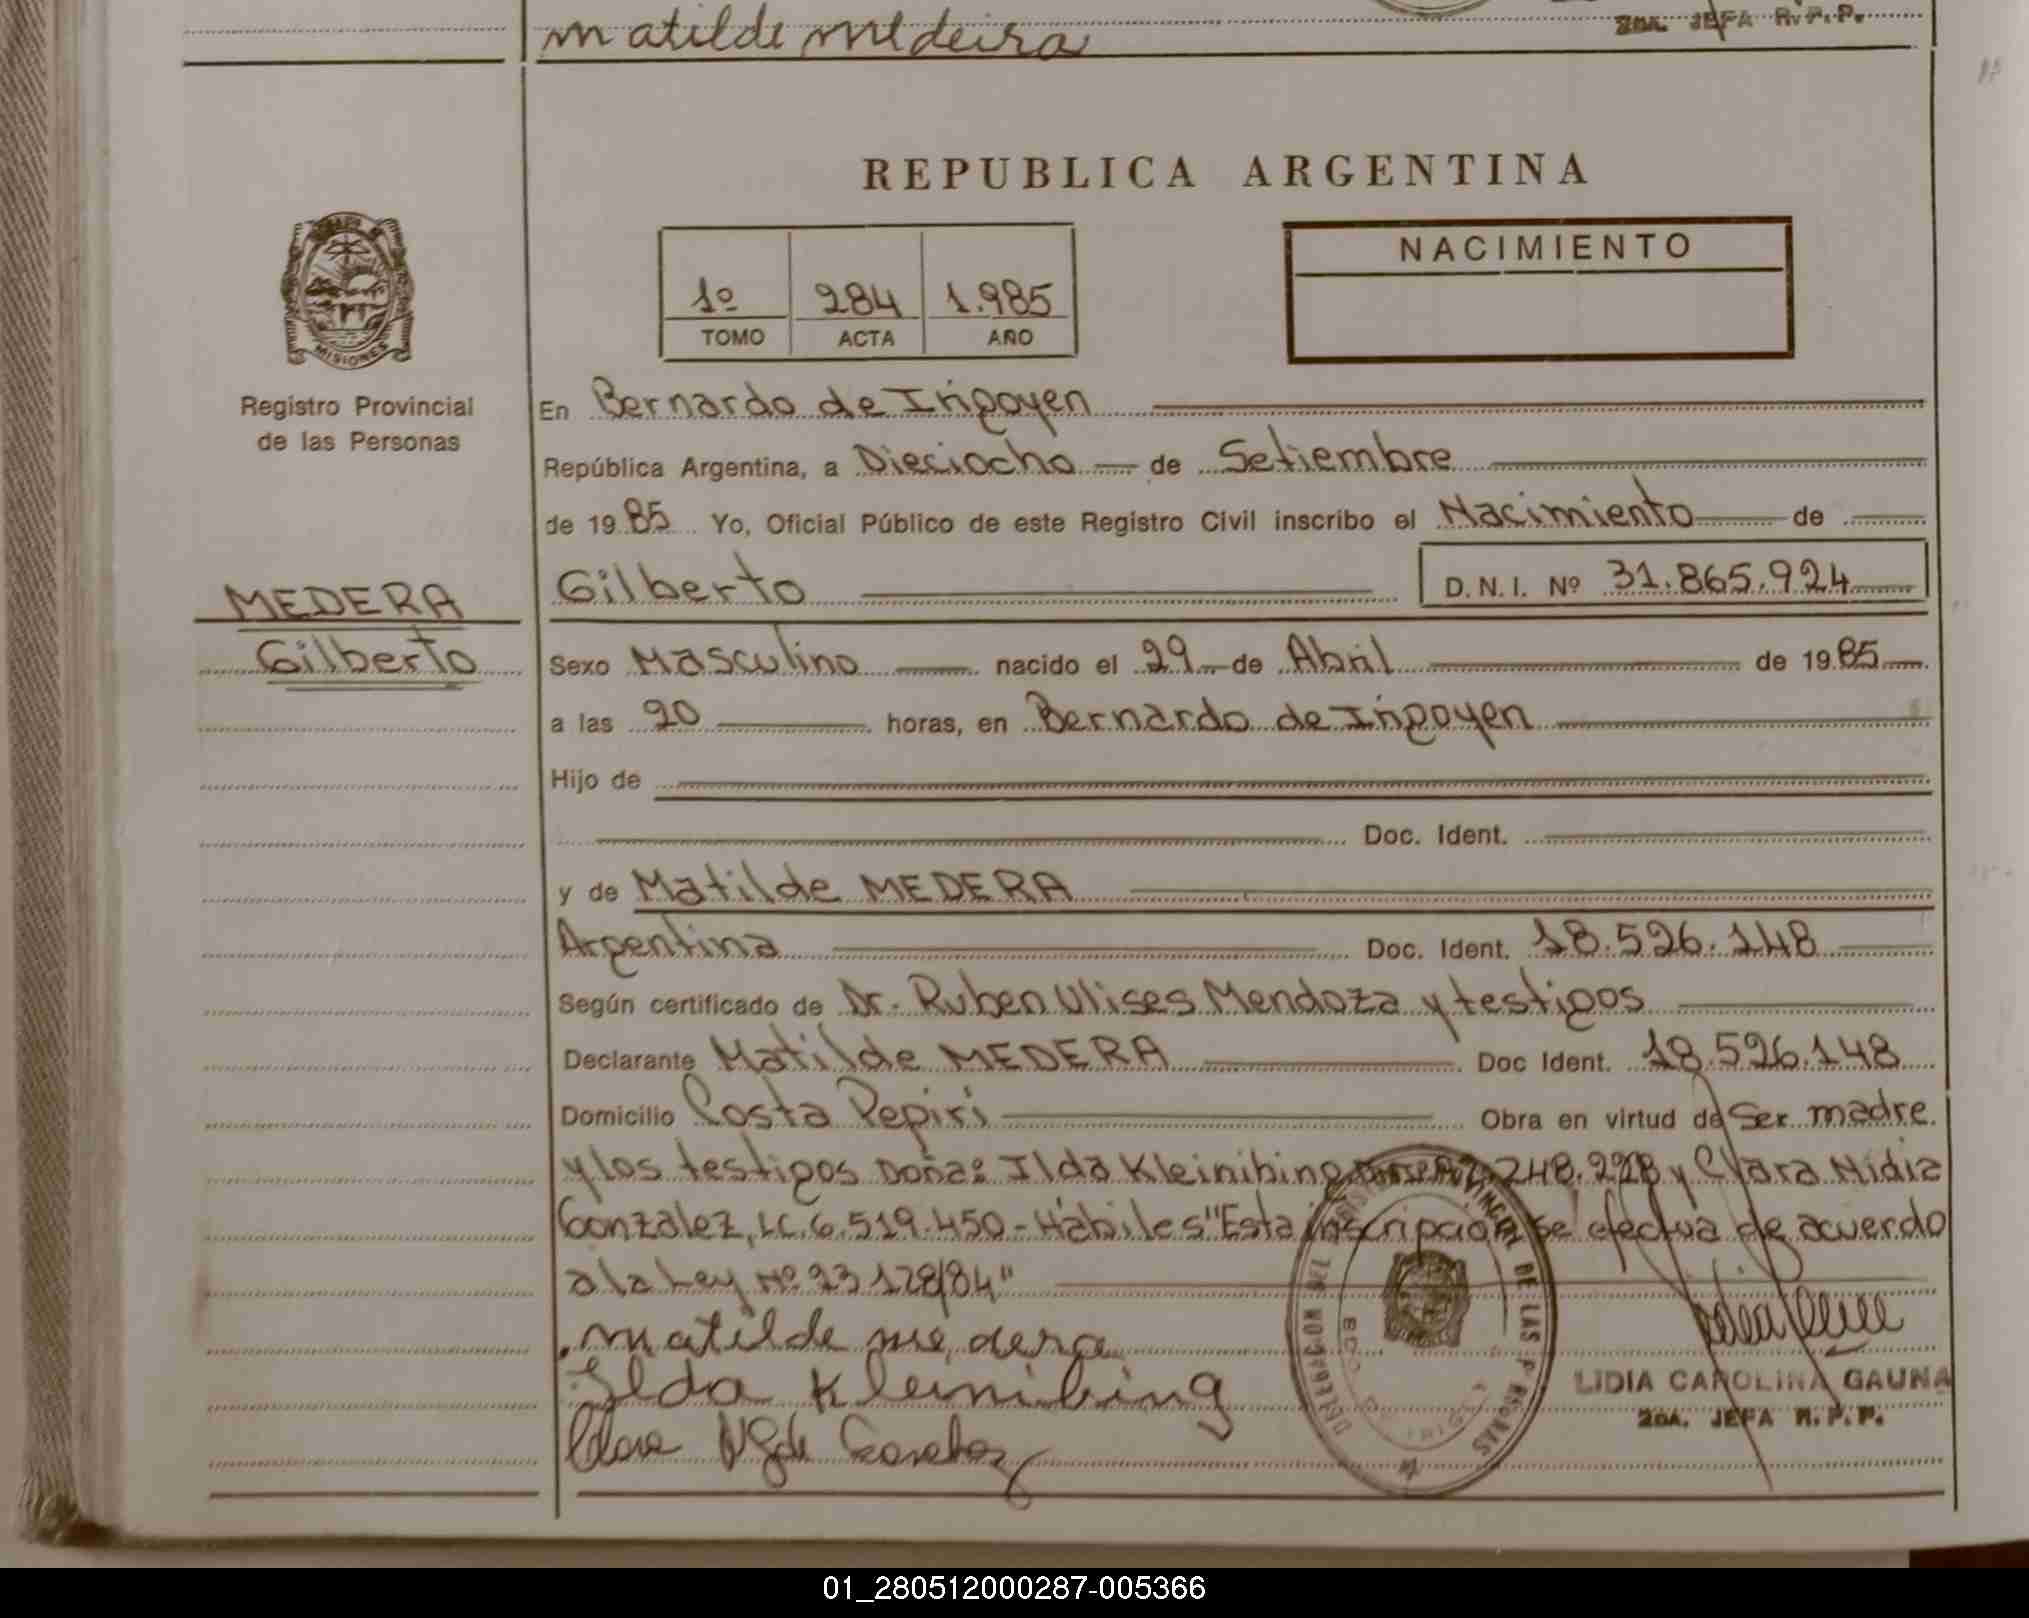 matilde medeira
2DA. JEFA R.P.P.
REPUBLICA ARGENTINA
NACIMIENTO
1º 284 1.985
TOMO ACTA AÑO
MISIONES
Registro Provincial
de las Personas
MEDERA
Gilberto
En Bernardo de Irigoyen
República Argentina, a Dieciocho de Setiembre
de 1985 Yo, Oficial Público de este Registro Civil inscribo el Nacimiento de
Gilberto D.N.I. Nº 31.865.924
Sexo Masculino nacido el 29 de Abril de 1985
a las 20 horas, en Bernardo de Irigoyen
Hijo de
Doc. Ident.
y de Matilde MEDERA
Argentina Doc. Ident. 18.526.148
Según certificado de Dr. Ruben Ulises Mendoza y testigos
Declarante Matilde MEDERA Doc Ident. 18.526.148
Domicilio Costa Pepiri Obra en virtud de Ser madre
y los testigos Doña: Ilda Kleinibing 248.228 y Clara Nidia
Gonzalez, LC. 6.519.450 - Hábiles "Esta inscripción se efectua de acuerdo
a la Ley Nº 23128/84"
matilde me, dera
Ilda Kleinibing
DELEGACION DEL REGISTRO PROVINCIAL DE LAS PERSONAS
LIDIA CAROLINA GAUNA
2DA. JEFA R.P.P.
01_280512000287-005366